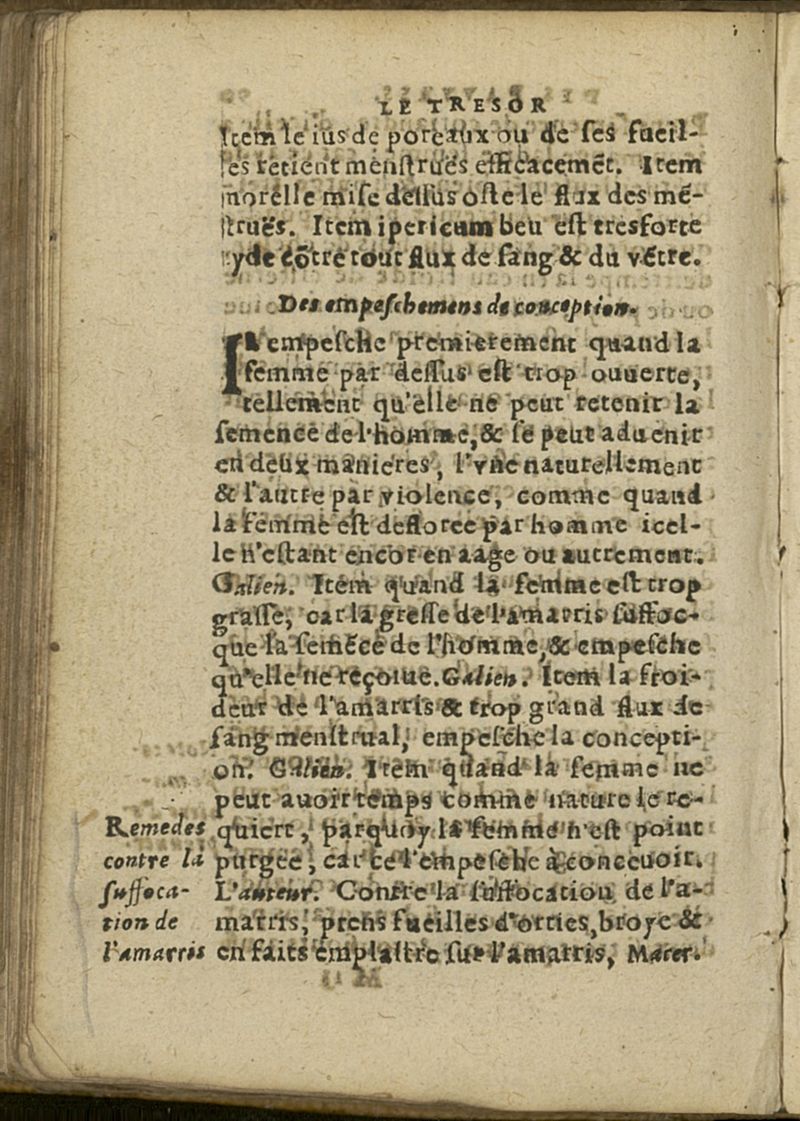 LE TRESOR
Item le ius de poreaux ou de ses fueil-
les retient menstrues efficacemēt. Item
morelle mise dessus oste le flux des mē-
struës. Item ipericum beu est tresforte
ayde cōtre tout flux de sang & du vētre.
Des empeschemens de conception.
IL empesche premierement quand la
femme par dessus est trop ouuerte,
tellement qu'elle ne peut retenir la
semence de l'homme, & se peut aduenir
en deux manieres, l'vne naturellement
& l'autre par violence, comme quand
la femme est defloree par homme icel-
le n'estant encor en aage ou autrement.
Galien. Item quand la femme est trop
grasse, car la gresse de l'amarris suffoc-
que la semēce de l'homme, & empesche
qu'elle ne reçoiue. Galien. Item la froi-
deur de l'amarris & trop grand flux de
sang menstrual, empesche la concepti-
on. Galien. Item quand la femme ne
peut auoir temps comme nature le re-
quiert, parquoy la femme n'est point
purgee, car ce l'empesche à conceuoir.
L'auteur. Contre la suffocation de l'a-
matris, prens fueilles d'orties, broye &
en faits emplastre sur l'amarris, Macer.
Remedes
contre la
suffoca-
tion de
l'amarris